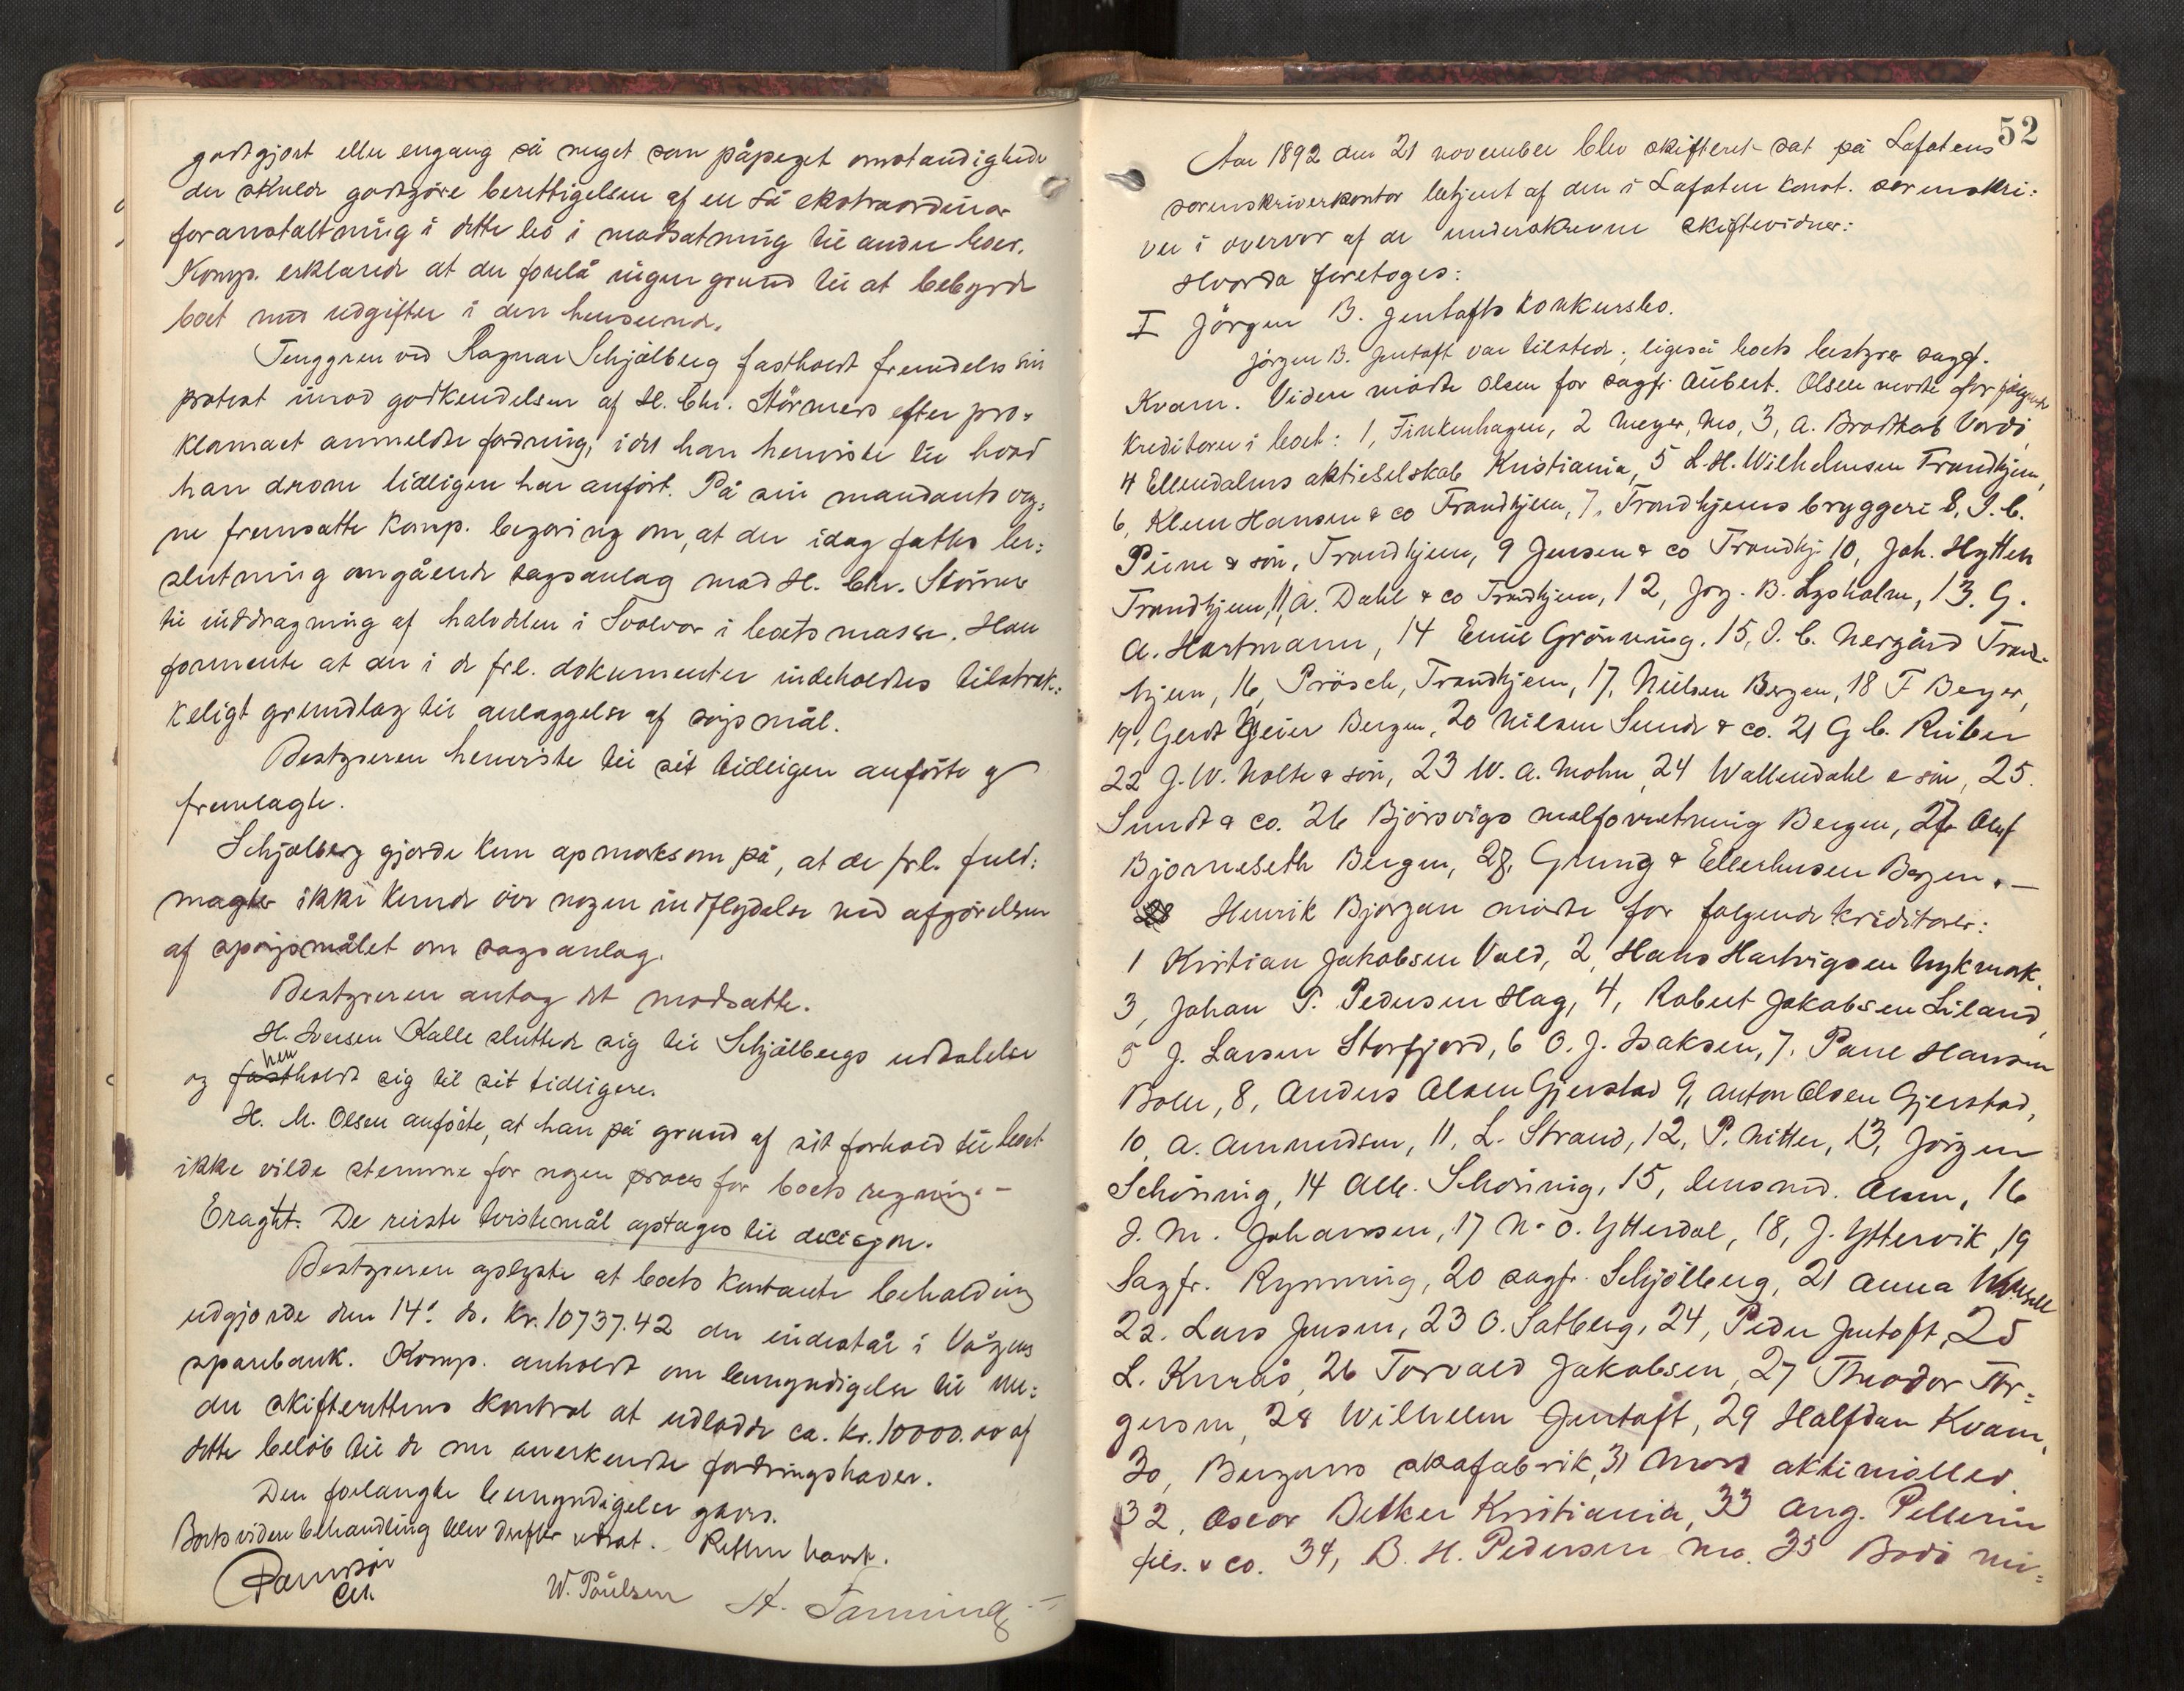 godtgjort eller engang så meget som påpeget omstændigheder
der skulde godtgjøre berettigelsen af en så ekstraordinær
foranstaltning i dette bo i modsætning til andre boer.
Komp. erklærede at der forelå ingen grund til at bebyrde
boet med udgifter i den henseende.
Tenggren ved Ragnar Schjølberg fastholdt fremdeles sin
protest imod godkendelsen af H. Chr. Størmers efter pro=
klamaet anmeldte fordring, idet han henviste til hvad
han derom tidligere har anført. På sin mandants veg=
ne fremsatte komp. begjæring om, at der idag fattes be=
slutning angående sagsanlag mod H. Chr. Størmer
til inddragning af halvdelen i Svolvær i boets masse. Han
formente at der i de frl. dokumenter indeholdtes tilstræk=
keligt grundlag til anlæggelse af søgsmål.
Bestyreren henviste til sit tidligere anførte og
fremlagte.
Schjølberg gjorde kun opmærksom på, at de frl. fuld=
magter ikke kunde øve nogen indflydelse ved afgjørelsen
af spørgsmålet om sagsanlag.
Bestyreren antog det modsatte.
H. Iversen Kalle sluttede sig til Schjølbergs udtalelse
hen
og fastholdt sig til sit tidligere.
H. M. Olsen anførte, at han på grund af sit forhold til boet
ikke vilde stemme for nogen proces for boets regning. -
Eragtet: De reiste tvistemål optages til decisjon.
Bestyreren oplyste at boets kontante beholdning
udgjorde den 14de ds. kr. 10737.42 der indestår i Vågens
sparebank. Komp. anholdt om bemyndigelse til un=
der skifterettens kontrol at udlodde ca. kr. 10000.00 af
dette beløb til de nu anerkendte fordringshaver.
Den forlangte bemyndigelse gaves.
Boets videre behandling blev derefter udsat. Retten hævet.
W. Paulsen H. Tanning
52
Aar 1892 den 21 november blev skifteret sat på Lofotens
sorenskriverkontor betjent af den i Lofoten konst. sorenskri=
ver i overvær af de underskrevne skiftevidner:
Hvorda foretoges:
I Jørgen B. Jentofts konkursbo.
Jørgen B. Jentoft var tilstede; ligeså boets bestyrer sagf.
Kvam. Videre mødte Olsen for sagf. Aubert. Olsen mødte for følgende
kreditorer i boet: 1, Finkenhagen, 2 Meyer, Mo, 3, A. Brodtkob Vardø,
4 Ellendalens aktieselskab Kristiania, 5 L. H. Wilhelmsen Trondhjem,
6, Klem Hansen & co Trondhjem, 7, Trondhjems bryggeri 8, I. C.
Piene & søn, Trondhjem, 9 Jensen & co Trondhj. 10, Joh. Hytten
Trondhjem, 11, A. Dahl & co Trondhjem, 12, Jørg. B. Lysholm, 13. G.
A. Hartmann, 14 Emil Grønning. 15, I. C. Nergård Trond=
hjem, 16, Prøsch, Trondhjem, 17, Nielsen Bergen, 18 F Beyer,
19, Gerdt Meier Bergen, 20 Nilsen Sundt & co. 21 G C. Rieber
22 J. W. Nolte & søn, 23 W. A. Mohn, 24 Wallendahl & søn, 25.
Sundt & co. 26 Bjørsvigs mølforretning Bergen, 27 Oluf
Bjørneseth Bergen, 28, Grung & Ellerhusen Bergen. —
Henrik Bjørgan mødte for følgende kreditorer:
1 Kristian Jakobsen Vold, 2, Hans Hartvigsen Nykmark,
3, Johan P. Pedersen Hag, 4, Robert Jakobsen Liland,
5 J. Larsen Storfjord, 6 O. J. Isaksen, 7. Paul Hansen
Bøle, 8, Anders Olsen Gjerstad 9, Anton Olsen Gjerstad,
10, A. Amundsen, 11, L. Strand, 12, P. Nitter, 13, Jørgen
Schøning, 14 Alb. Schøning, 15, lensmd. Aasen, 16
J. M. Johansen, 17 N. O. Ytterdal, 18, J. Yttervik, 19
Sagfr. Rynning, 20 sagfr. Schjølberg, 21 Anna
22. Lars Jensen, 23 O. Satberg, 24, Peder Jentoft, 25
L. Kuraas, 26 Torvald Jakobsen, 27 Theodor Tor=
gersen, 28 Wilhelm Jentoft, 29 Halfdan Kvam,
30, Bergens skofabrik, 31 Moss aktiemølle.
32, Oscar Betker Kristiania, 33 Aug. Pellerin
fils. & co. 34, B. H. Pedersen Mo. 35 Bodø mi=